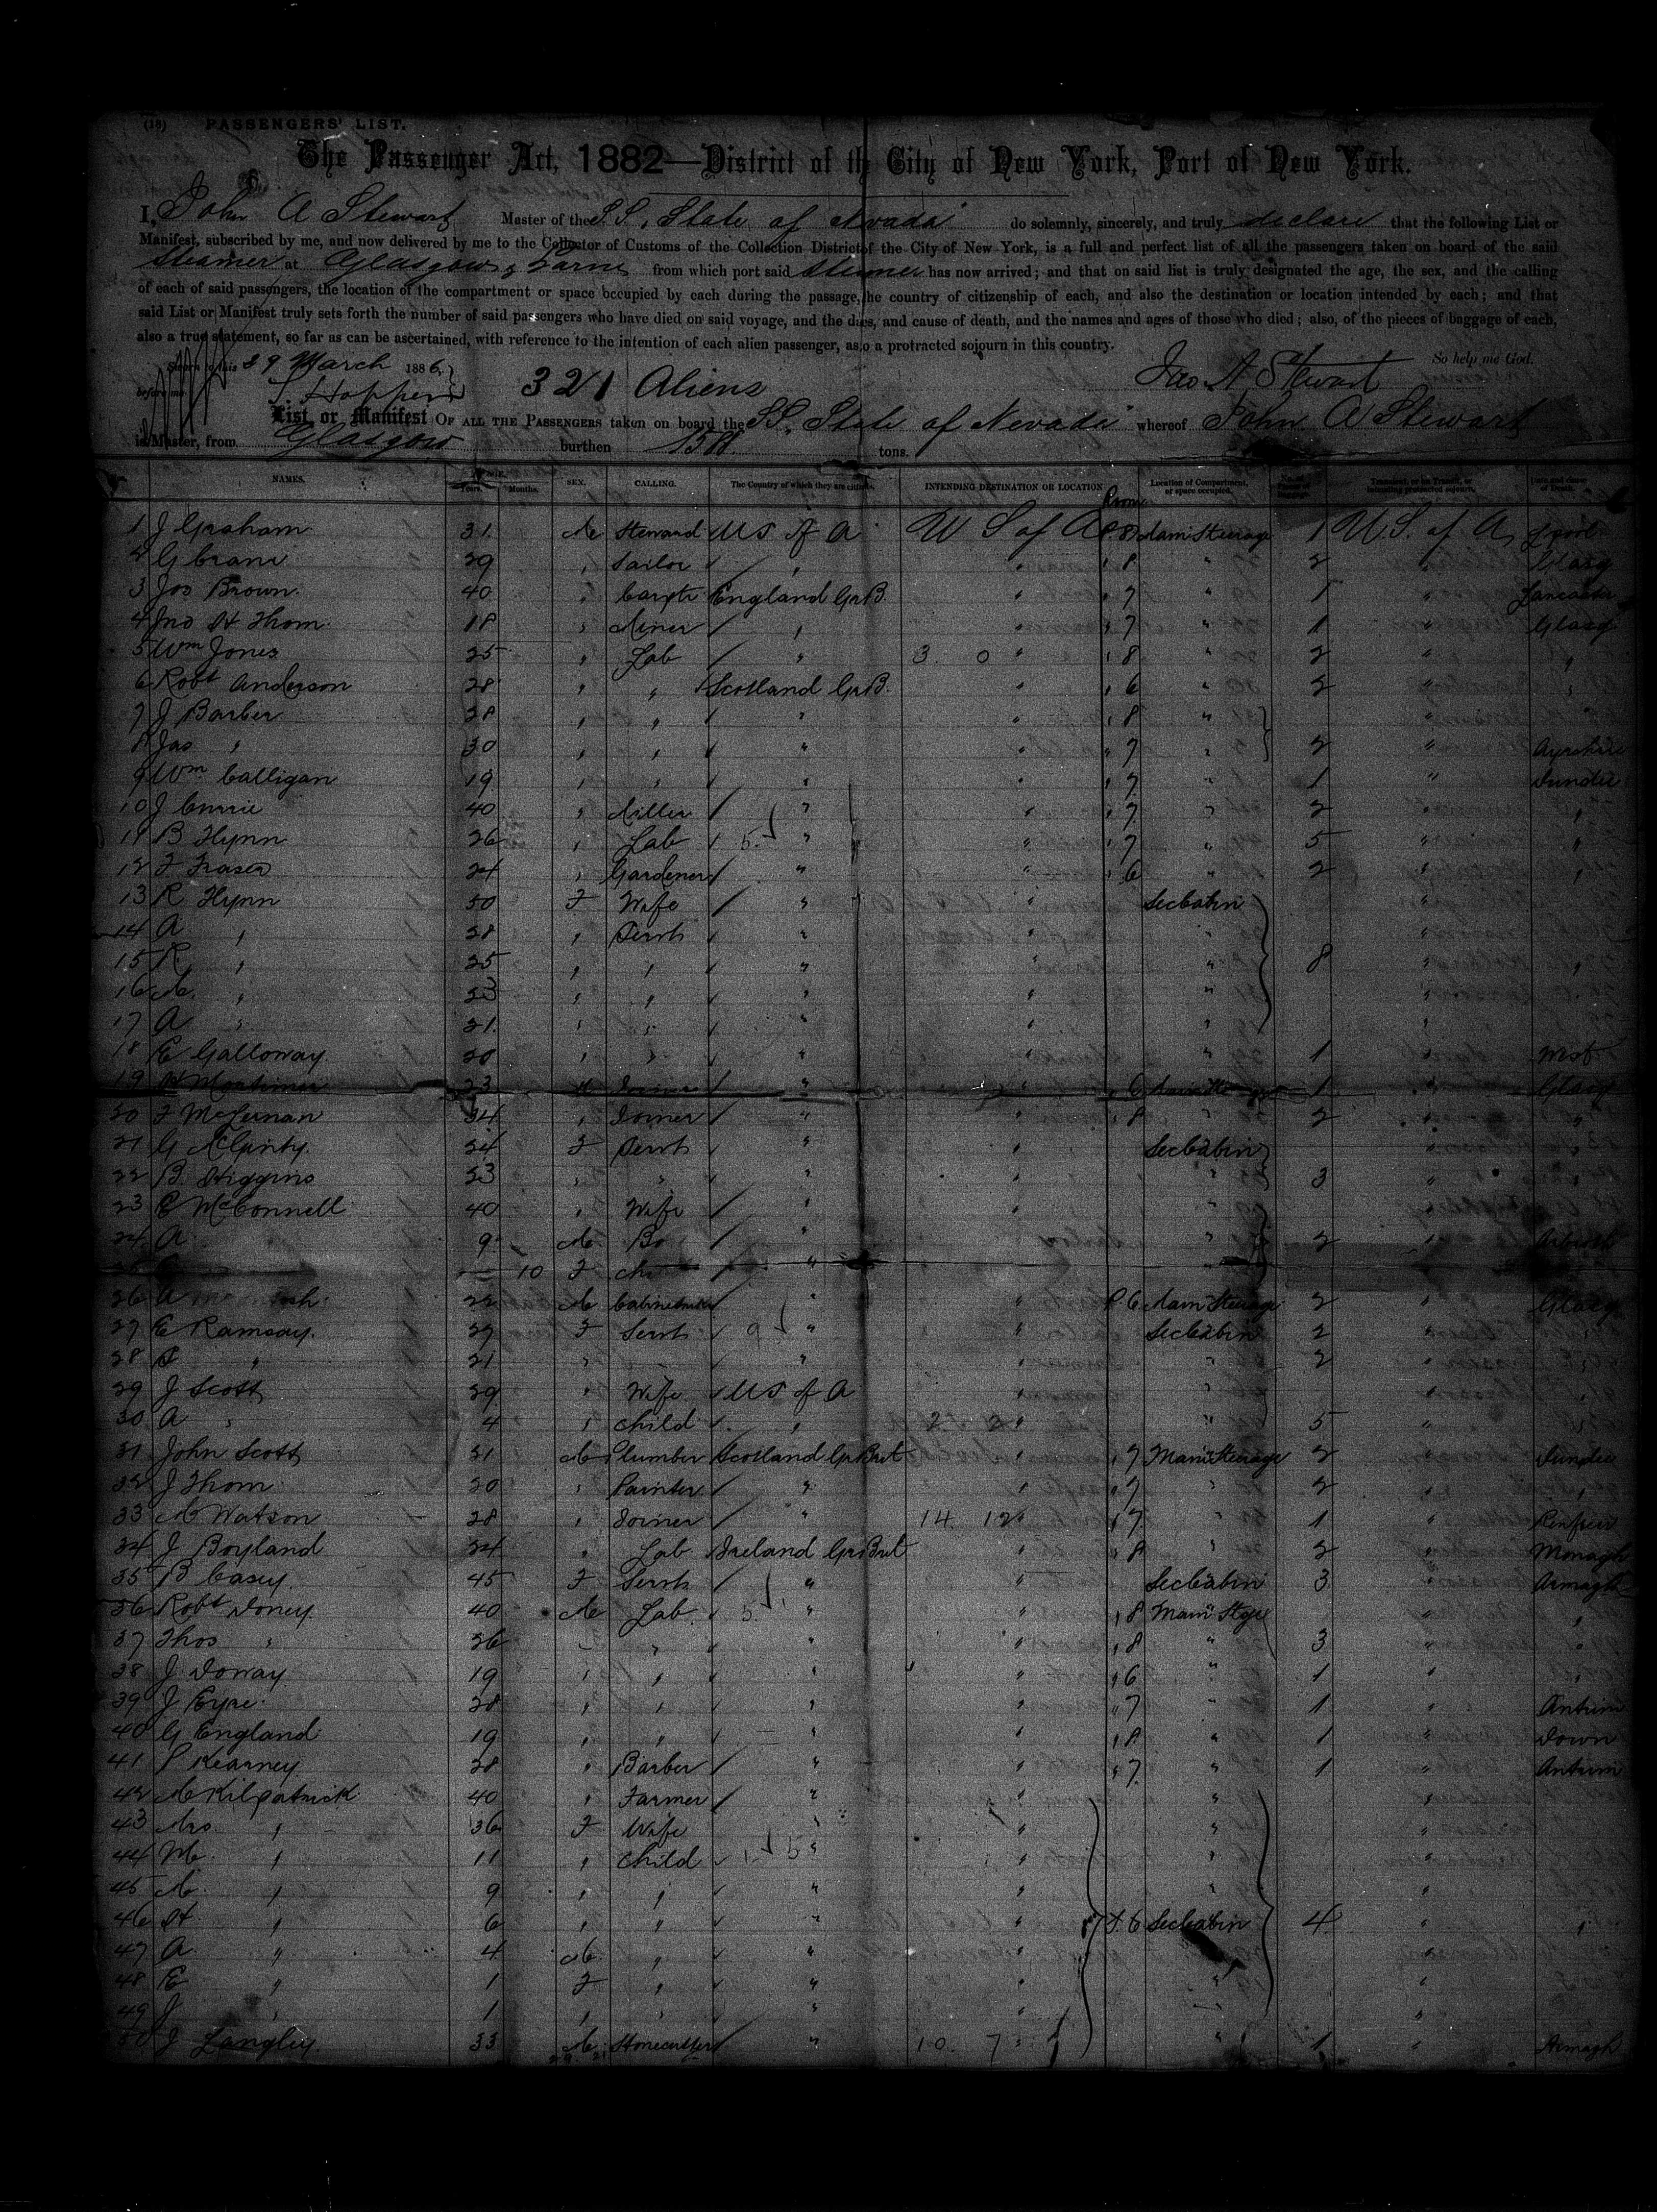 (18) PASSENGERS' LIST.
The Passenger Act, 1882—District of the City of New York, Port of New York.
I, John A Stewart Master of the S.S. State of Nevada do solemnly, sincerely, and truly declare that the following List or
Manifest, subscribed by me, and now delivered by me to the Collector of Customs of the Collection District of the City of New York, is a full and perfect list of all the passengers taken on board of the said
Steamer at Glasgow & Larne from which port said Steamer has now arrived; and that on said list is truly designated the age, the sex, and the calling
of each of said passengers, the location of the compartment or space occupied by each during the passage, the country of citizenship of each, and also the destination or location intended by each; and that
said List or Manifest truly sets forth the number of said passengers who have died on said voyage, and the dates, and cause of death, and the names and ages of those who died; also, of the pieces of baggage of each,
also a true statement, so far as can be ascertained, with reference to the intention of each alien passenger, as to a protracted sojourn in this country.
So help me God.
Sworn to this 29 March 1886
before me 321 Aliens Jno A Stewart
List or Manifest OF ALL THE PASSENGERS taken on board the S.S. State of Nevada whereof John A Stewart
is Master, from Glasgow burthen 1588 tons.
NAMES. Years. Months. SEX. CALLING. The Country of which they are citizens. INTENDING DESTINATION OR LOCATION Room Location of Compartment, or space occupied. Transient, or in Transit, or intending protracted sojourn. Date and cause of Death.
1 J Graham 31 M Steward US of A U S of A 8 Main Steerage 1 U.S. of A
2 G Crani 29 " Sailor " " 8 " 2 " Glasg
3 Jos Brown 40 " Carptr England Gr B. " 7 " 1 " Lancaster
4 Jno H Thom 18 " Miner " " 7 " 1 " Glasg
5 Wm Jones 25 " Lab " 3 0 " 8 " 2 " "
6 Robt Anderson 28 " " Scotland Gr B. " 6 " 2 " "
7 J Barber 28 " " " " 8 " "
8 Jas " 30 " " " " 7 " 2 " Ayrshire
9 Wm Calligan 19 " " " " 7 " 1 " Dundee
10 J Currie 40 " Miller " " 7 " 2 " "
11 B Flynn 26 " Lab 5 " " 7 " 5 " "
12 F Fraser 24 " Gardener " " 6 " 2 " "
13 R Flynn 50 F Wife " " Sec Cabin "
14 A " 28 " Servt " " " "
15 R " 25 " " " " " 8 " "
16 M " 23 " " " " " "
17 A " 21 " " " " " "
18 E Galloway 20 " " " " " 1 "
19 Mortimer 23 M " " 6 Main 1 " Glasg
20 F McLernan 34 " Joiner " " 8 " 2 " "
21 G McGinty 24 F Servt " " Sec Cabin "
22 B. Higgins 23 " " " " " 3 " "
23 E McConnell 40 " Wife " " " "
24 A 9 M " " 2 "
10 F " "
26 A 22 M Cabinetmaker " " 6 Main Steerage 2 " Glasg
27 E Ramsay 27 F Servt 9 " " Sec Cabin 2 " "
28 " 21 " " " " 2 " "
29 J Scott 29 " Wife US of A " " " "
30 A " 4 " Child " 2 2 " " 5 " "
31 John Scott 31 M Plumber Scotland Gr Brit " 7 Main Steerage 2 " Dundee
32 J Thom 20 " Painter " " 7 " 2 " "
33 M Watson 28 " Joiner " 14 12 " 7 " 1 " Renfrew
34 J Boyland 24 " Lab Ireland Gr Brit " 8 " 2 " Monagh
35 B Casey 45 F Servt " " Sec Cabin 3 " Armagh
36 Robt Doney 40 M Lab 5 " " 8 Main Stge " "
37 Thos " 26 " " " " 8 " 3 " "
38 J Doway 19 " " " " 6 " 1 " "
39 J Eyre 28 " " " " 7 " 1 " Antrim
40 G England 19 " " " " 8 " 1 " Down
41 P Kearney 28 " Barber " " 7 " 1 " Antrim
42 M Kilpatrick 40 " Farmer " " " " "
43 Mrs " 36 F Wife " " " "
44 M " 11 " Child 1 5 " " " "
45 M " 9 " " " " "
46 H " 6 " " " " 6 Sec Cabin 4 " "
47 A " 4 M " " " "
48 E " 1 F " " " " "
49 J " 1 " " " " "
50 J Langley 33 M Stonecutter " 10 7 " " 1 " Armagh